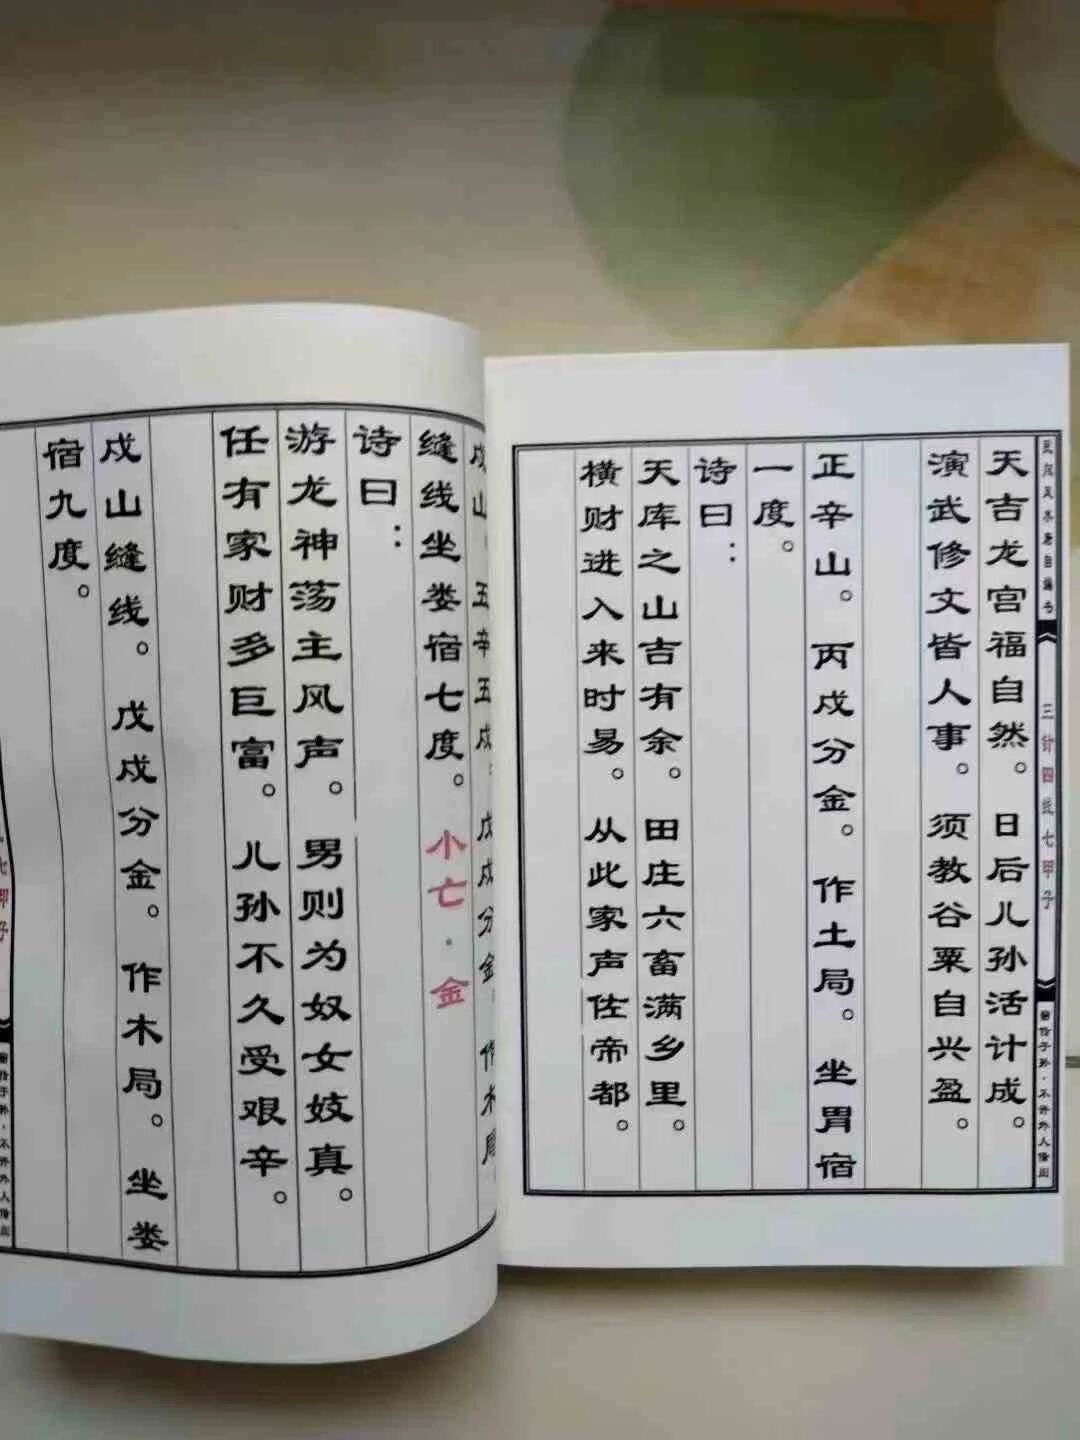 三针四线七甲子
天吉龙宫福自然。日后儿孙活计成。
演武修文皆人事。须教谷粟自兴盈。
正辛山。丙戌分金。作土局。坐胃宿
一度。
诗曰：
天库之山吉有余。田庄六畜满乡里。
横财进入来时易。从此家声佐帝都。
戌山 五辛五戌 戊戌分金 作木局
缝线坐娄宿七度。小亡·金
诗曰：
游龙神荡主风声。男则为奴女妓真。
任有家财多巨富。儿孙不久受艰辛。
戌山缝线。戊戌分金。作木局。坐娄
宿九度。
七甲子